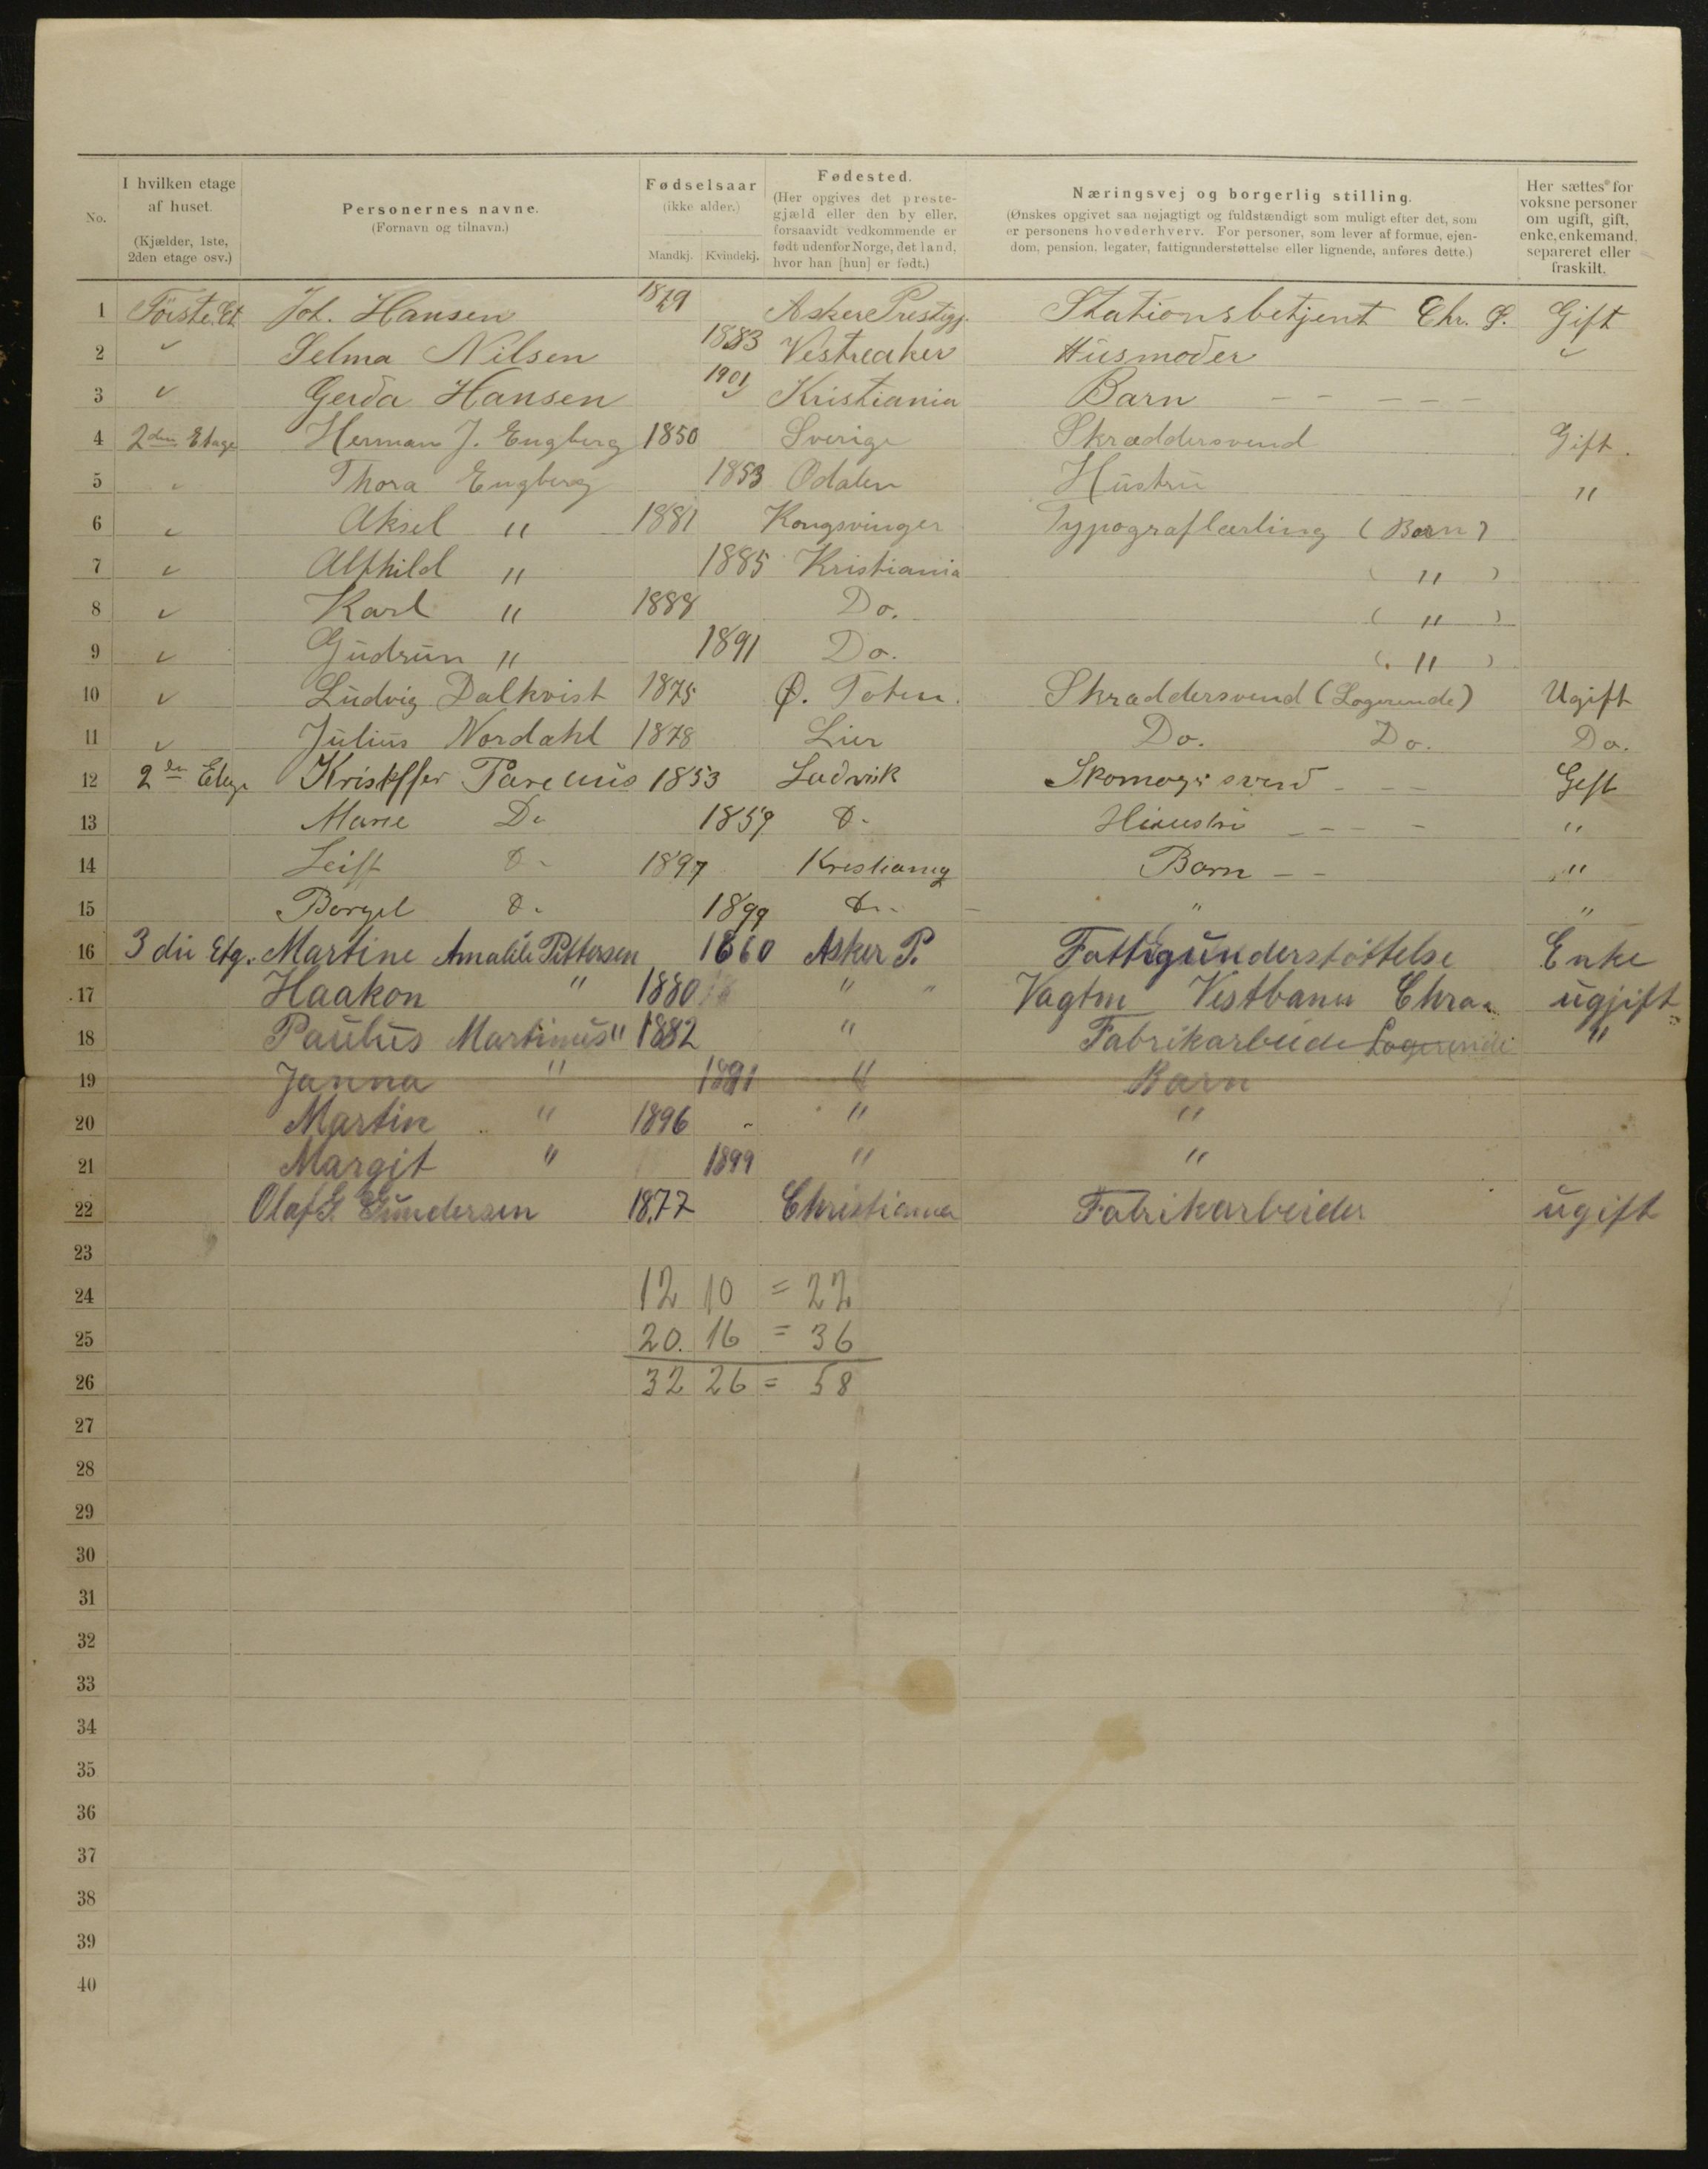 No. I hvilken etage af huset. (Kjælder, 1ste, 2den etage osv.) Personernes navne. (Fornavn og tilnavn.) Fødselsaar (ikke alder.) Mandkj. Kvindekj. Fødested. (Her opgives det prestegjæld eller den by eller, forsaavidt vedkommende er født udenfor Norge, det land, hvor han [hun] er født.) Næringsvej og borgerlig stilling. (Ønskes opgivet saa nøjagtigt og fuldstændigt som muligt efter det, som er personens hovederhverv. For personer, som lever af formue, ejendom, pension, legater, fattigunderstøttelse eller lignende, anføres dette.) Her sættes for voksne personer om ugift, gift, enke, enkemand, separeret eller fraskilt.
1 Første Et Joh. Hansen 1879 Asker Prestegj. Stationsbetjent Chr. S. Gift
2 " Selma Nilsen 1883 Vestreaker Husmoder "
3 " Gerda Hansen 1901 Kristiania Barn - - - - -
4 2den Etage Herman J. Engberg 1850 Sverige Skræddersvend Gift.
5 " Thora Engberg 1853 Odalen Hustru "
6 " Aksel " 1881 Kongsvinger Typograflærling (Barn)
7 " Alfhild " 1885 Kristiania ( " )
8 " Karl " 1888 Do. ( " )
9 " Gudrun " 1891 Do. ( " )
10 " Ludvig Dalkvist 1875 Ø. Toten. Skræddersvend (Logerende) Ugift
11 " Julius Nordahl 1878 Lier Do. Do. Do.
12 2den Etage Kristffer 1853 Skomagersvend - - - Gift
13 Marie Do 1859 D. - - - - "
14 Leif D. 1897 Kristiania Barn - - "
15 D. 1899 D. - " "
16 3die Etg. Martine Amalie Pettersen 1860 Asker P. Fattigunderstøttelse Enke
17 Haakon " 1880 " " Vagtm Vestbanen Chra. ugjift
18 Paulus Martinus " 1882 " Fabrikarbeide Logerende "
19 Janna " 1891 " Barn
20 Martin " 1896 " "
21 Margit " 1899 " "
22 Olaf G Gundersen 1877 Christiania Fabrikarbeider ugift
23
24 12 10 = 22
25 20. 16 = 36
26 32 26 = 58
27
28
29
30
31
32
33
34
35
36
37
38
39
40